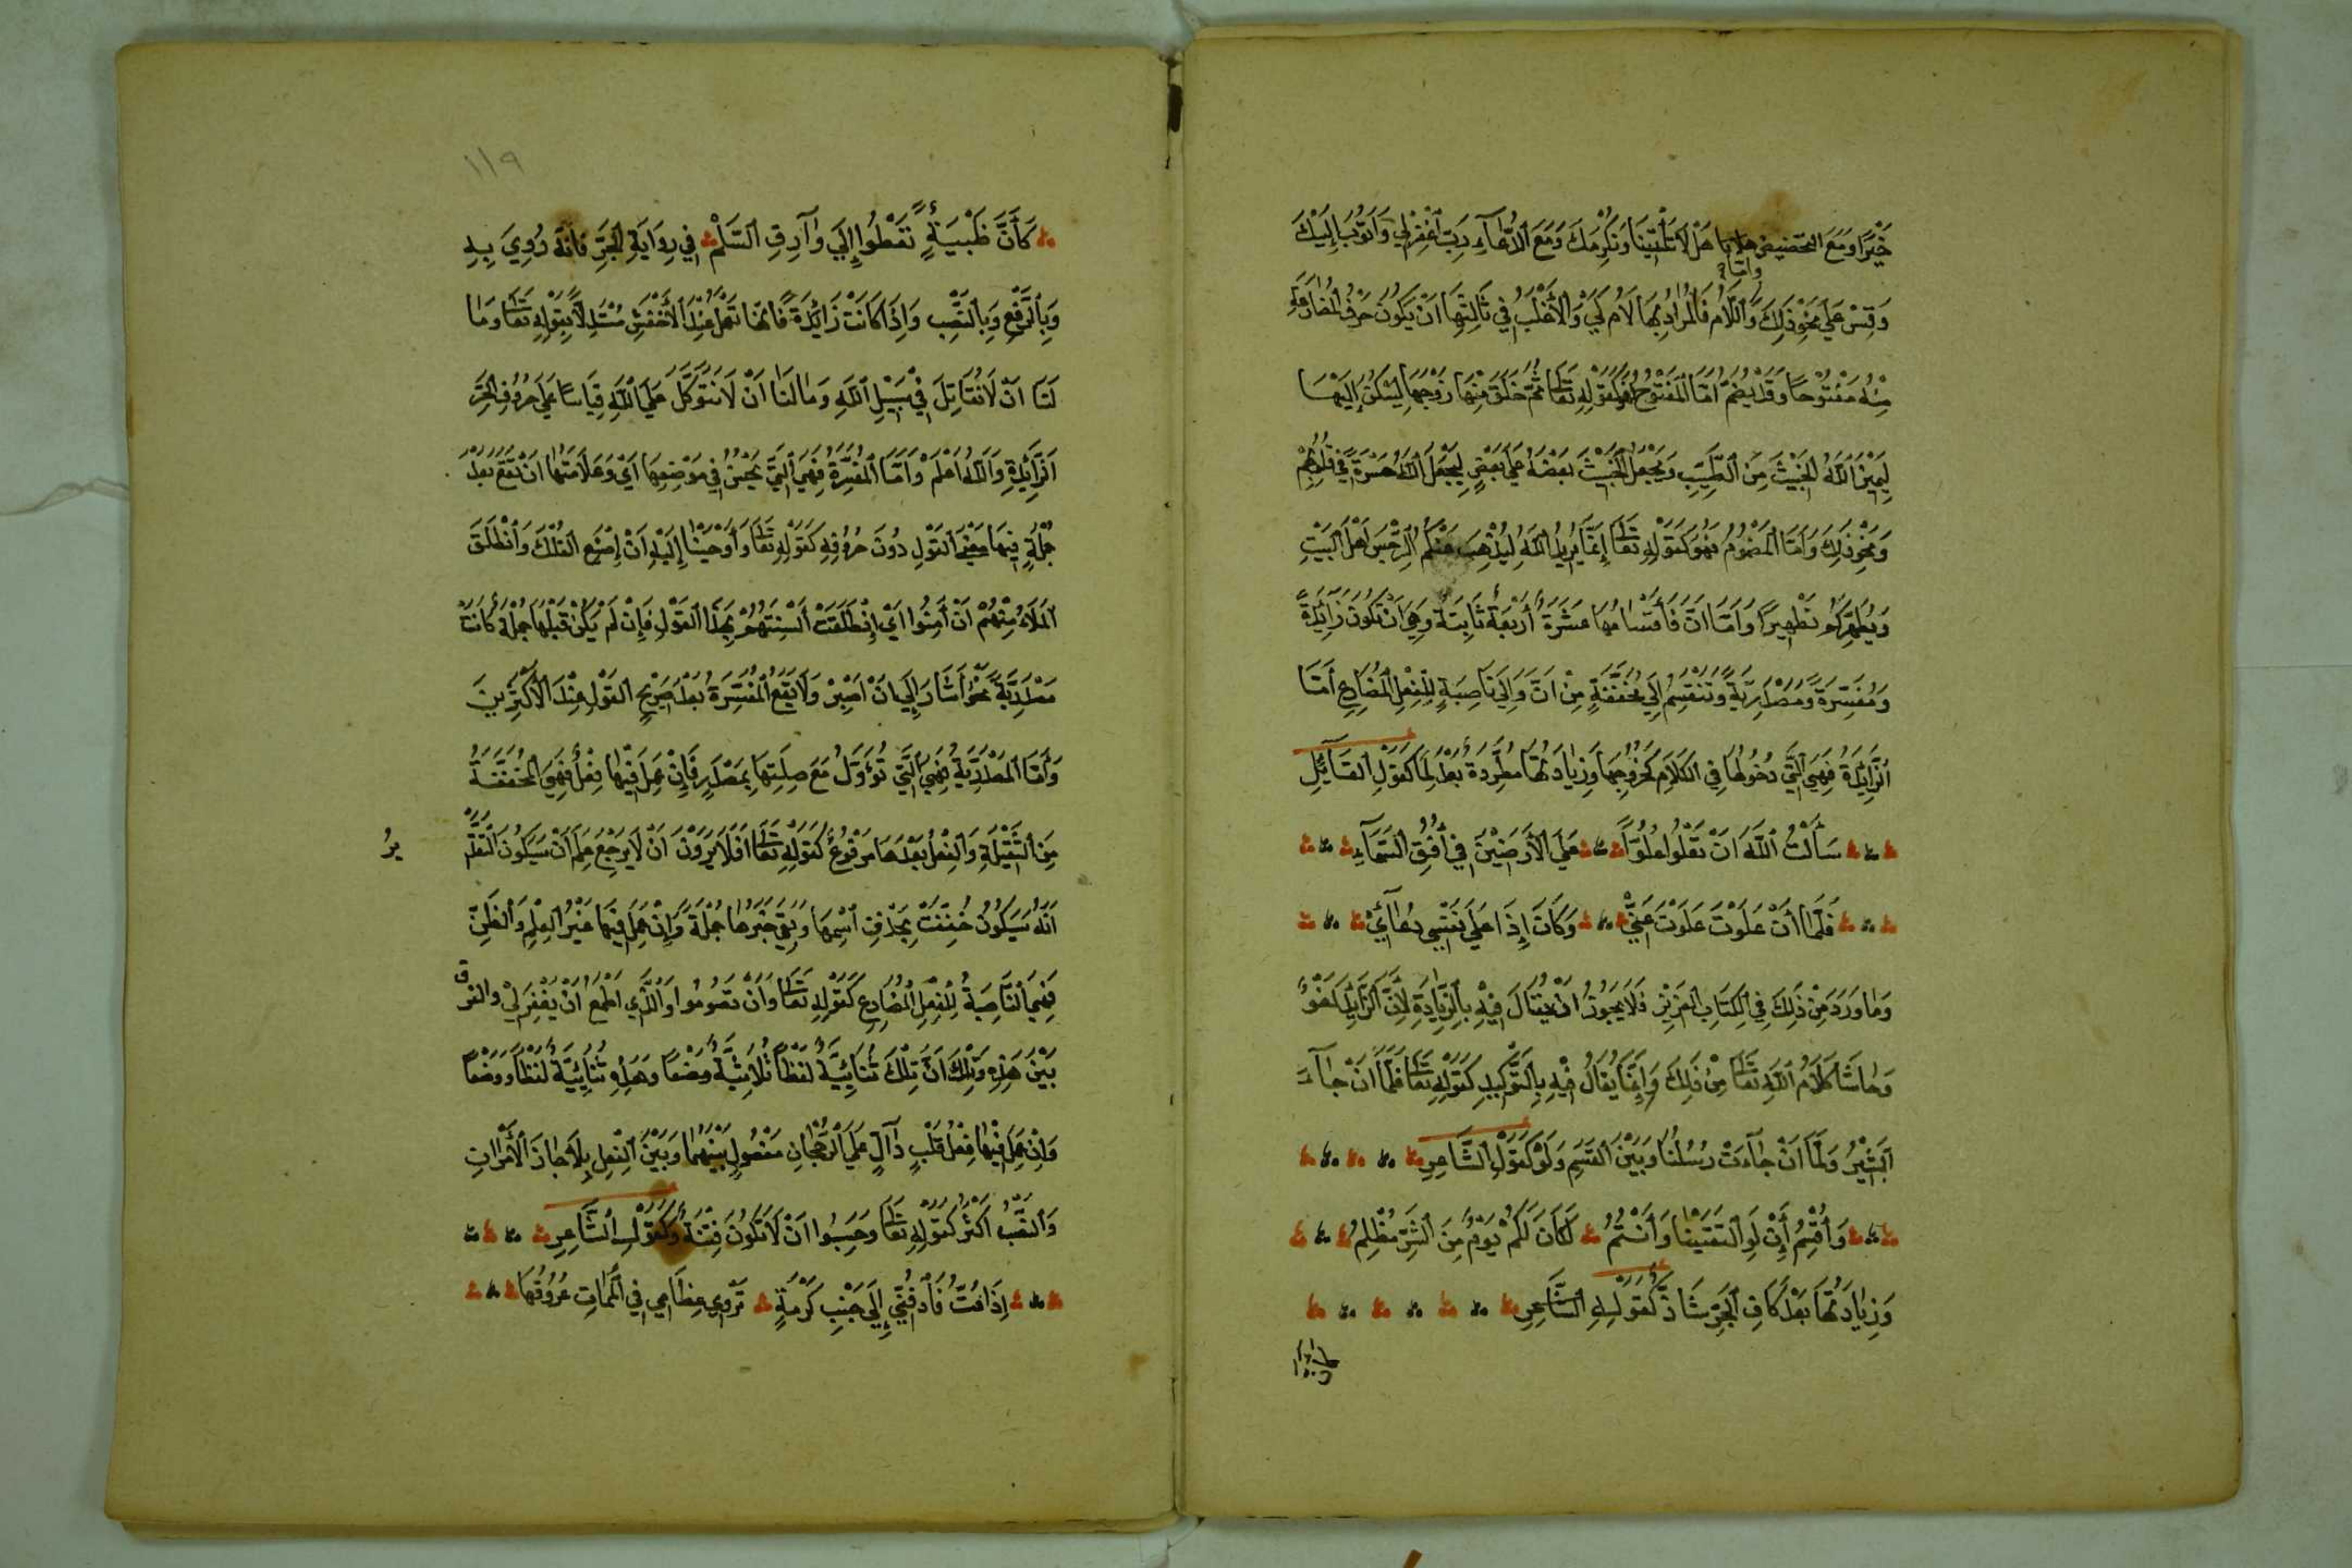 خَيْرًا وَمَعَ التحضيض هَلْ لَا تَأْتِيْنَا وَنُكْرِمَكَ وَمَعَ الدُّعَآءِ رَبِّ اغْفِرْلِي وَاَتُوْبَ اِلَيْكَ
وَقِسْ عَلَي نَحْوِ ذَلِكَ وَامَّا اللَّامُ فَالْمُرَادُ بِهَا لَامُ كَيْ وَالْاَغْلَبُ فِي ثَالِثِهَا اَنْ يَكُوْنَ حَرْفُ الْمُضَارَعَةِ
مِنْهُ مَفْتُوْحًا وَقَدْ يُضَمُّ اَمَّا الْمَفْتُوْحُ فَكَقَوْلِهِ تَعَالَى ثُمَّ خَلَقَ مِنْهَا زَوْجَهَا لِيَسْكُنَ اِلَيْهَا
لِيَمِيْزَ اللّٰهُ الْخَبِيْثَ مِنَ الطَّيِّبِ وَيَجْعَلَ الْخَبِيْثَ بَعْضَهُ عَلَى بَعْضٍ لِيَجْعَلَ اللّٰهُ حَسْرَةً فِي قُلُوْبِهِمْ
وَنَحْوِ ذَلِكَ وَاَمَّا الْمَضْمُوْمُ فَهُوَ كَقَوْلِهِ تَعَالَى اِنَّمَا يُرِيْدُ اللّٰهُ لِيُذْهِبَ عَنْكُمُ الرِّجْسَ اَهْلَ الْبَيْتِ
وَيُطَهِّرَكُمْ تَطْهِيْرًا وَاَمَّا اَنْ فَاَقْسَامُهَا عَشَرَةٌ اَرْبَعَةٌ ثَابِتَةٌ وَهِيَ اَنْ تَكُوْنَ زَائِدَةً
وَمُفَسِّرَةً وَمَصْدَرِيَّةً وَتَنْقَسِمُ اِلَى مُخَفَّفَةٍ مِنْ اَنَّ وَاِلَى نَاصِبَةٍ لِلْفِعْلِ الْمُضَارِعِ اَمَّا
الزَّائِدَةُ فَهِيَ الَّتِي دُخُوْلُهَا فِي الْكَلَامِ كَخُرُوْجِهَا وَزِيَادَتُهَا مُطَّرِدَةٌ بَعْدَ لَمَّا كَقَوْلِ الْقَآئِلِ
سَأَلْتُ اللّٰهَ اَنْ تَعْلُوا عُلُوًّا عَلَى الْاَرَضِيْنَ فِي اُفُقِ السَّمَآءِ
فَلَمَّا اَنْ عَلَوْتَ عَلَوْتَ عَنِّيْ وَكَانَ اِذَا عَلَى نَفْسِي دُعَائِيْ
وَمَا وَرَدَ مِنْ ذَلِكَ فِي الْكِتَابِ الْعَزِيْزِ فَلَا يَجُوْزُ اَنْ يُقَالَ فِيْهِ بِالزِّيَادَةِ لِأَنَّ الزَّائِدَ لَغْوٌ
وَحَاشَا كَلَامُ اللّٰهِ تَعَالَى مِنْ ذَلِكَ وَاِنَّمَا يُقَالُ فِيْهِ بِالتَّوْكِيْدِ كَقَوْلِهِ تَعَالَى فَلَمَّا اَنْ جَآءَ
الْبَشِيْرُ وَلَمَّا اَنْ جَآءَتْ رُسُلُنَا وَبَيْنَ الْقَسَمِ وَلَوْ كَقَوْلِ الشَّاعِرِ
وَأُقْسِمُ أَنْ لَوِ الْتَقَيْنَا وَاَنْتُمُ لَكَانَ لَكُمْ يَوْمٌ مِنَ الشَّرِّ مُظْلِمُ
وَزِيَادَتُهَا بَعْدَ كَافِ الْجَرِّ شَاذٌّ كَقَوْلِهِ الشَّاعِرِ
١١٩
كَاَنَّ ظَبْيَةٍ تَعْطُوْا اِلَي وَارِقِ السَّلَمْ فِي رِوَايَةِ الْجَرِّ فَاِنَّهُ رُوِيَ بِهِ
وَبِالرَّفْعِ وَبِالنَّصْبِ وَاِذَا كَانَتْ زَائِدَةً فَاِنَّهَا تَعْمَلُ عِنْدَ الْاَخْفَشِ مُسْتَدِلًّا بِقَوْلِهِ تَعَالَى وَمَا
لَنَا اَنْ لَا نُقَاتِلَ فِيْ سَبِيْلِ اللّٰهِ وَمَا لَنَا اَنْ لَا نَتَوَكَّلَ عَلَى اللّٰهِ قِيَاسًا عَلَى حُرُوْفِ الْجَرِّ
الزَّائِدَةِ وَاللّٰهُ اَعْلَمْ وَاَمَّا الْمُفَسِّرَةُ فَهِيَ الَّتِي يَحْسُنُ فِي مَوْضِعِهَا اَيْ وَعَلَامَتُهَا اَنْ تَقَعَ بَعْدَ
جُمْلَةٍ فِيْهَا مَعْنَى الْقَوْلِ دُوْنَ حُرُوْفِهِ كَقَوْلِهِ تَعَالَى وَاَوْحَيْنَا اِلَيْهِ اَنْ اِصْنَعِ الْفُلْكَ وَانْطَلَقَ
الْمَلَاءُ مِنْهُمْ اَنْ اٰمِنُوا اَيْ اِنْطَلَقَتْ اَلْسِنَتُهُمْ بِهَذَا الْقَوْلِ فَاِنْ لَمْ يَكُنْ قَبْلَهَا جُمْلَةٌ كَانَتْ
مَصْدَرِيَّةً نَحْوُ اَشَارَ اِلَي اَنْ اصْبِرْ وَلَا يَقَعُ الْمُفَسِّرَةُ بَعْدَ صَرِيْحِ الْقَوْلِ عِنْدَ الْاَكْثَرِيْنَ
وَاَمَّا الْمَصْدَرِيَّةُ فَهِيَ الَّتِي تُؤَوَّلُ مَعَ صِلَتِهَا بِمَصْدَرٍ فَاِنْ عَمِلَ فِيْهَا فِعْلٌ فَهِيَ الْمُخَفَّفَةُ
مِنَ الثَّقِيْلَةِ وَالْفِعْلُ بَعْدَهَا مَرْفُوْعٌ كَقَوْلِهِ تَعَالَى اَفَلَا يَرَوْنَ اَنْ لَا يَرْجِعُ عَلِمَ اَنْ سَيَكُوْنُ التَّقْدِ
يرُ
اَنَّهُ سَيَكُوْنُ خُفِّفَتْ بِحَذْفِ اسْمِهَا وَبَقِيَ خَبَرُهَا جُمْلَةً وَاِنْ عَمِلَ فِيْهَا غَيْرُ الْعِلْمِ وَالظَّنِّ
فَهِيَ النَّاصِبَةُ لِلْفِعْلِ الْمُضَارِعِ كَقَوْلِهِ تَعَالَى وَاَنْ تَصُوْمُوا وَالَّذِي اَطْمَعُ اَنْ يَغْفِرَ لِيْ والفرق
بَيْنَ هَذِهِ وَتِلْكَ اَنَّ تِلْكَ ثُنَائِيَّةٌ لَفْظًا ثُلَاثِيَّةٌ وَضْعًا وَهَذِهِ ثُنَائِيَّةٌ لَفْظًا وَوَضْعًا
وَاِنْ عَمِلَ فِيْهَا فِعْلُ قَلْبٍ دَآلٍّ عَلَي الرُّجْحَانِ مَفْصُوْلٍ بَيْنَهُمَا وَبَيْنَ الْفِعْلِ بِلَا جَازَ الْأَمْرَانِ
وَالنَّصْبُ اَكْثَرُ كَقَوْلِهِ تَعَالَى وَحَسِبُوا اَنْ لَا تَكُوْنَ فِتْنَةٌ وَكَقَوْلِ الشَّاعِرِ
اِذَا مُتُّ فَادْفُنِّي اِلَى جَنْبِ كَرْمَةٍ تَرْوِي عِظَامِي فِي الْمَمَاتِ عُرُوْقُهَا